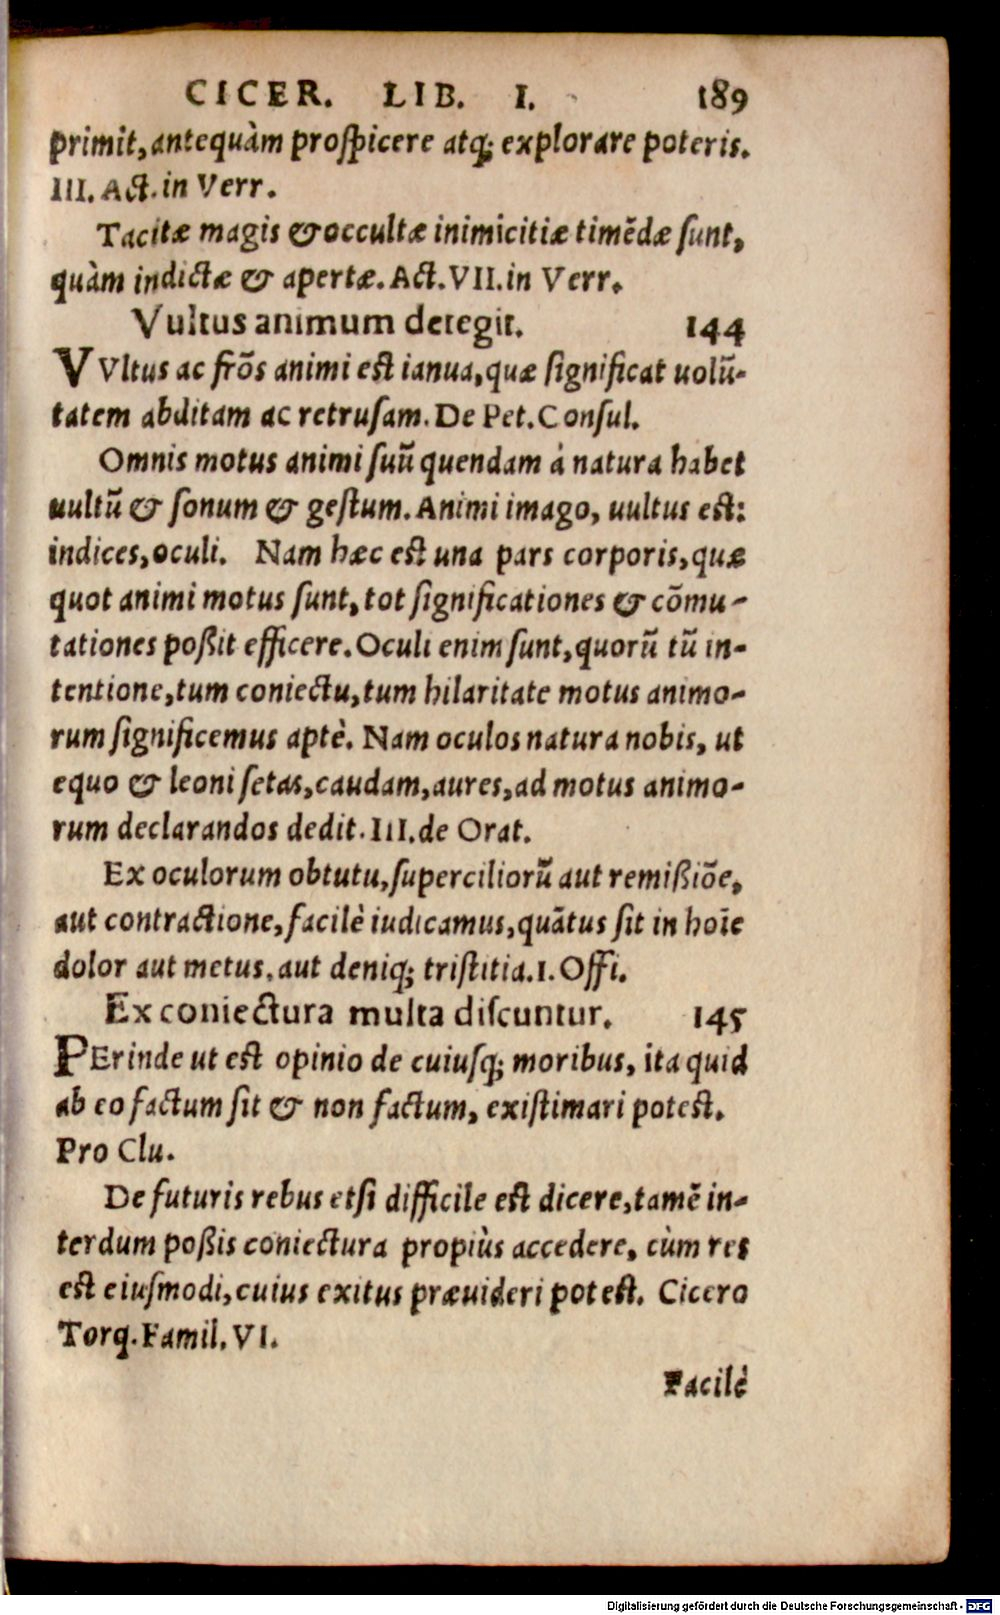 CICER. LIB. I. 189
primit, antequàm proſpicere atq; explorare poteris.
III. Act. in Verr.
Tacitæ magis & occultæ inimicitiæ timēdæ ſunt,
quàm indictæ & apertæ. Act. VII. in Verr.
Vultus animum detegit. 144
VVltus ac frōs animi est ianua, quæ ſignificat uolū-
tatem abditam ac retruſam. De Pet. Conſul.
Omnis motus animi ſuū quendam à natura habet
uultū & ſonum & geſtum. Animi imago, uultus est:
indices, oculi. Nam hæc est una pars corporis, quæ
quot animi motus ſunt, tot ſignificationes & cōmu-
tationes poßit efficere. Oculi enim ſunt, quorū tū in-
tentione, tum coniectu, tum hilaritate motus animo-
rum ſignificemus aptè. Nam oculos natura nobis, ut
equo & leoni ſetas, caudam, aures, ad motus animo-
rum declarandos dedit. III. de Orat.
Ex oculorum obtutu, ſuperciliorū aut remißiōe,
aut contractione, facilè iudicamus, quātus ſit in hoīe
dolor aut metus, aut deniq; triſtitia. I. Offi.
Ex coniectura multa diſcuntur. 145
PErinde ut est opinio de cuiuſq; moribus, ita quid
ab eo factum ſit & non factum, exiſtimari potest.
Pro Clu.
De futuris rebus etſi difficile est dicere, tamē in-
terdum poßis coniectura propiùs accedere, cùm res
est eiuſmodi, cuius exitus præuideri potest. Cicero
Torq. Famil. VI.
Facilè
Digitalisierung gefördert durch die Deutsche Forschungsgemeinschaft - DFG